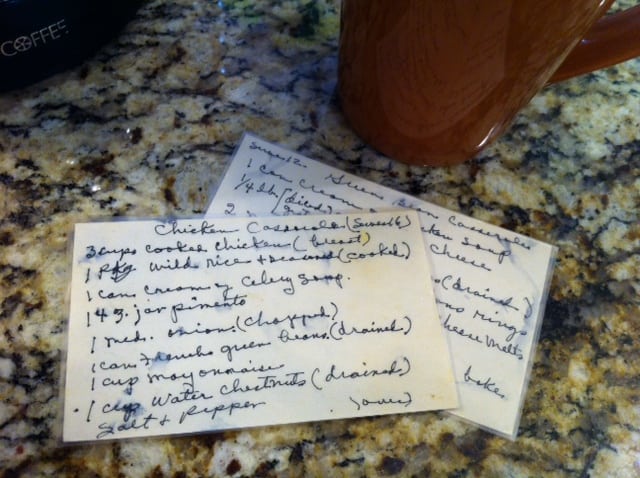 COFFEE
Serves 12. Green Bean Casserole
1 can cream chicken soup
1/4 lb. (diced) cheese
2
(drained)
rings
cheese melts
bakes
Chicken Casserole (Serves 16)
3 cups cooked chicken (breast)
1 pkg wild rice + seasoned (cooked)
1 can cream of celery soup.
1 4 oz. jar pimento
1 med. onion (chopped)
1 can French green beans (drained)
1 cup mayonnaise
1 cup water chestnuts (drained)
Salt + pepper (over)